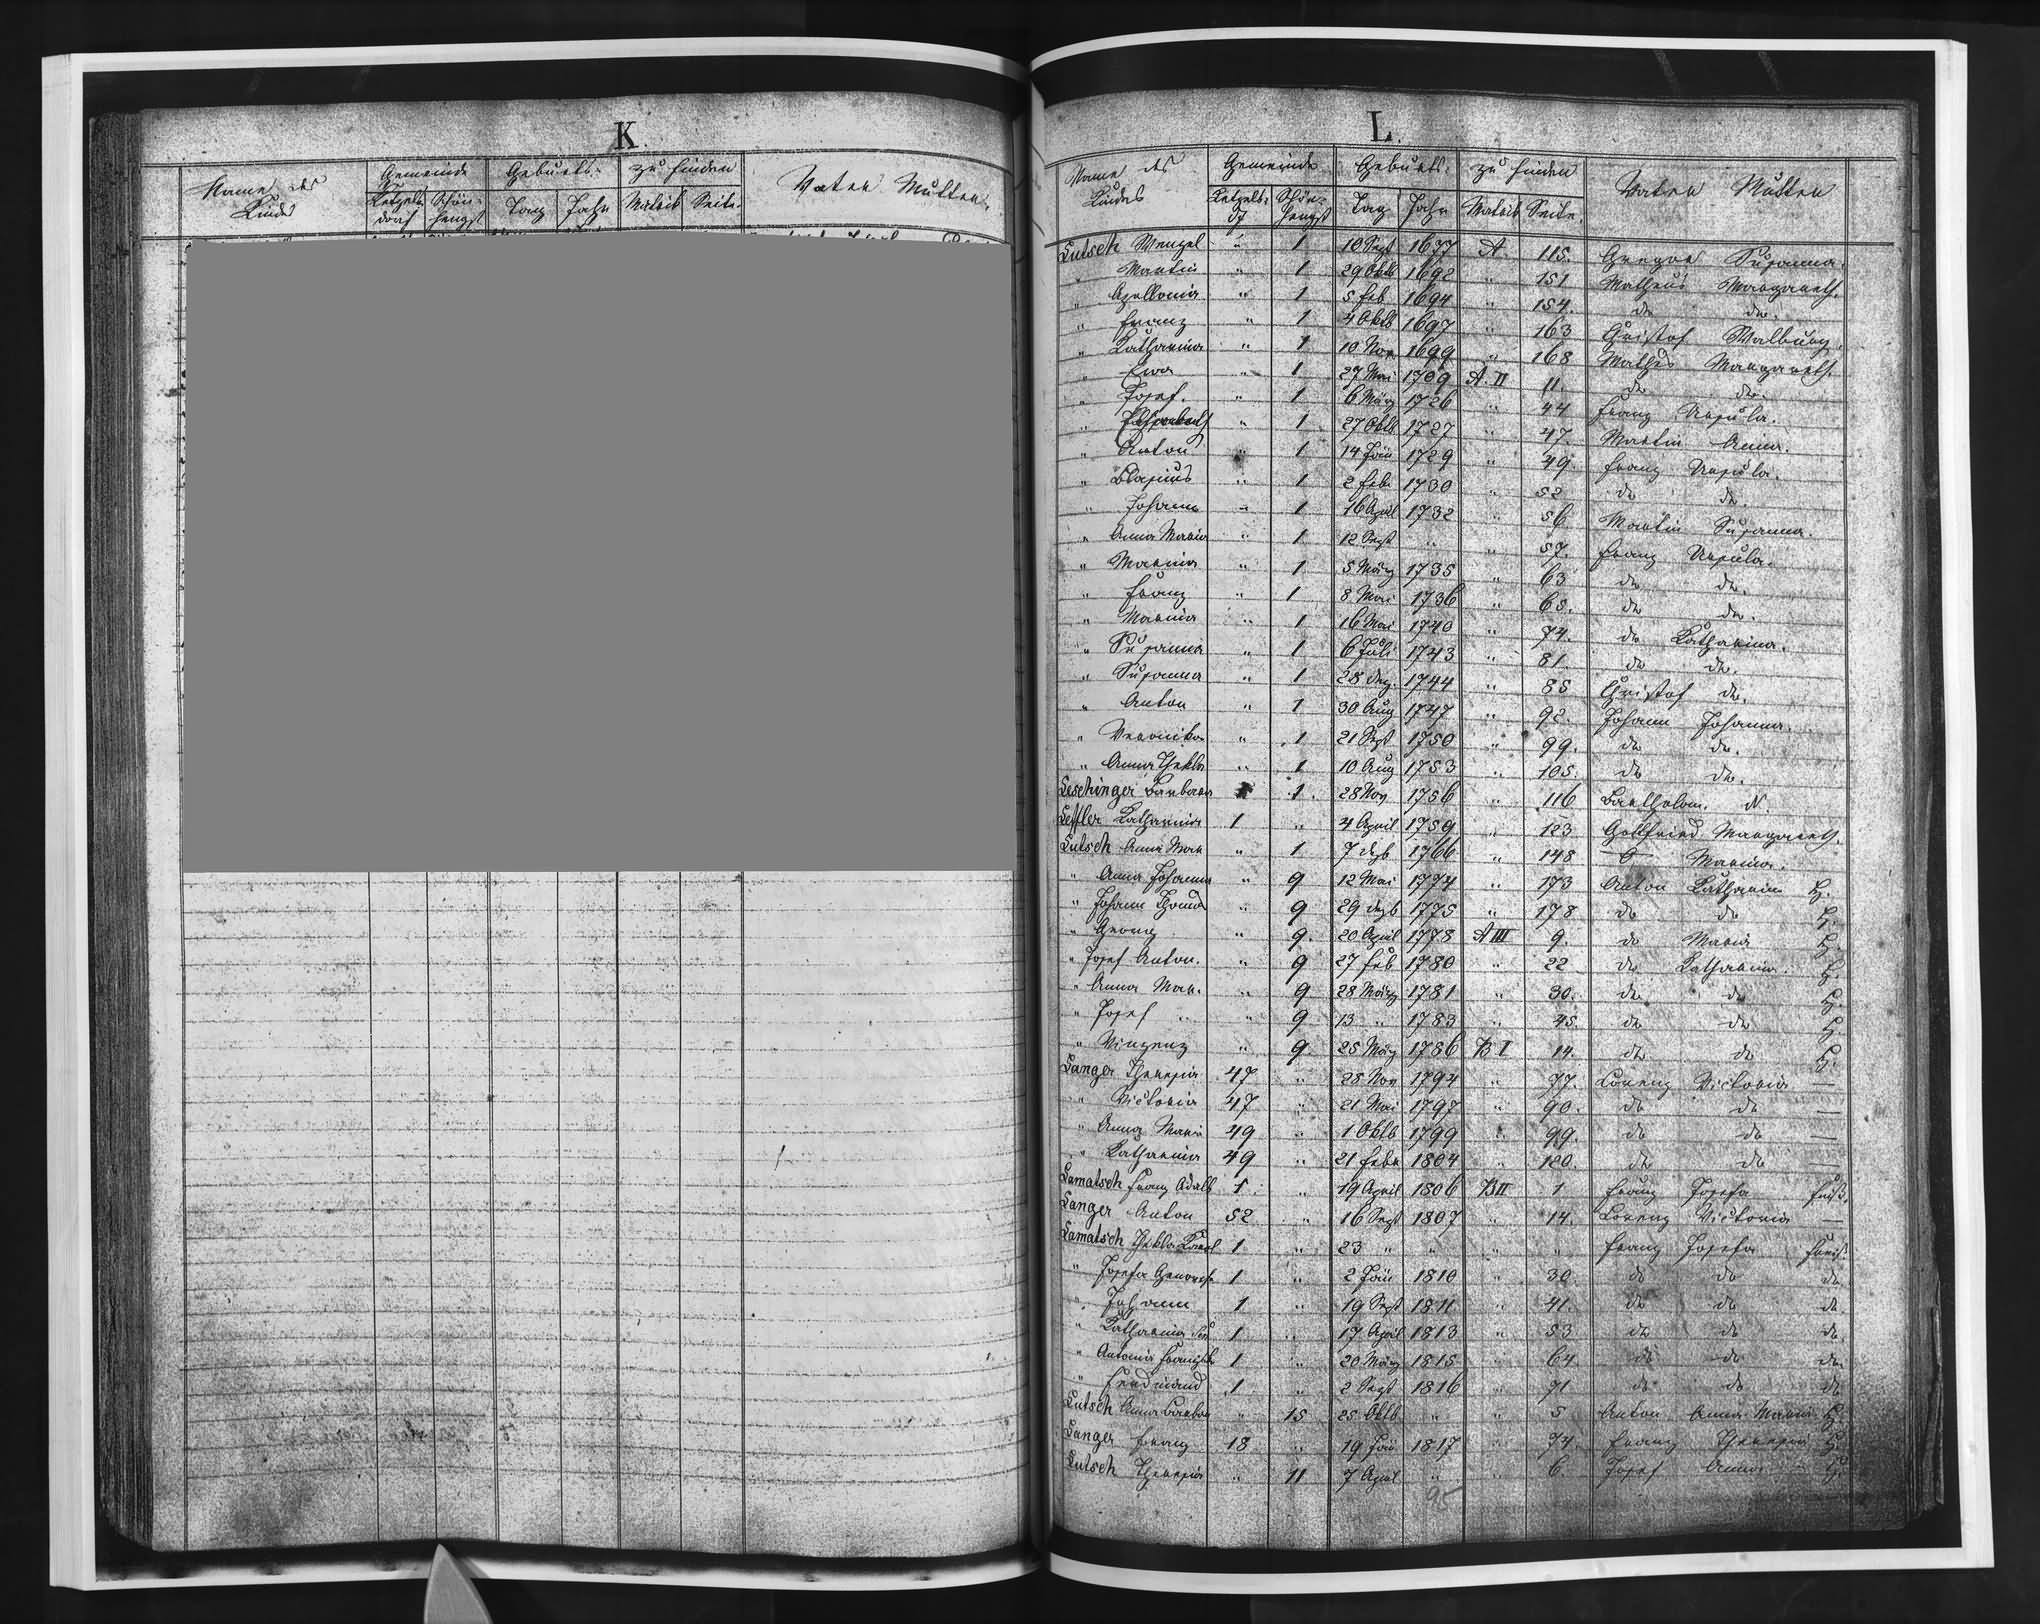 K.
Name des Kindes
Gemeinde Ketzels-dorf Schön-hengst
Geburts- Tag Jahr
zu finden Matrik Seite.
Vater Mutter.
L.
Name des Kindes
Gemeinde Ketzels-df Schön-hengst
Geburts- Tag Jahr
zu finden Matrik Seite.
Vater Mutter
Lutsch Wenzel " 1 10 Sept 1677 A. 115. Gregor Susanna.
" Martin " 1 29 Oktb 1692 " 151 Matheus Margareth.
" Apollonia " 1 5 Feb 1694 " 154. do do.
" Franz " 1 4 Oktb 1697 " 163 Christof Walburg.
" Katharina " 1 10 Nov 1699 " 168 Mathes Margareth.
" Eva " 1 27 Mai 1709 A. II 11. do do.
" Josef. " 1 6 März 1726 " 44 Franz Ursula.
" " 1 27 Oktb 1727 " 47. Martin Anna.
" Anton " 1 14 Jän 1729 " 49. Franz Ursula.
" Blasius " 1 2 Feb 1730 " 52 do do.
" Johann " 1 16 April 1732 " 56. Martin Susanna.
" Anna Maria " 1 12 Sept " " 57. Franz Ursula.
" Marina " 1 5 März 1735 " 63 do do.
" Franz " 1 8 Mai 1736 " 65. do do.
" Marina " 1 16 Mai 1740 " 74. do Katharina.
" Susanna " 1 6 Juli 1743 " 81. do do.
" Susanna " 1 28 Dez. 1744 " 85 Christof do.
" Anton " 1 30 Aug 1747 " 92. Johann Johanna.
" Veronika " 1 21 Sept 1750 " 99. do do.
" Anna Thekla " 1 10 Aug 1753 " 105. do do.
Leschinger Barbara 1. 28 Nov 1756 " 116 Bartholom. N.
Leffler Katharina 1 " 4 April 1759 " 123 Gottfried Margareth.
Lutsch Anna Mar " 1 7 dezb 1766 " 148 0 Marina.
" Anna Johanna " 9 12 Mai 1774 " 173 Anton Katharina H.
" Johann Thomas " 9 29 dezb 1775 " 178 do do H.
" Georg " 9. 20 April 1778 A III 9. do Maria H.
" Josef Anton. " 9 27 Feb 1780 " 22 do Katharina. H.
" Anna Mar. " 9 28 März 1781 " 30. do do H.
" Josef " 9 13 " 1783 " 45. do do H.
" Vinzenz " 9. 25 März 1786 B I 14. do do H.
Langer Theresia 47 " 28 Nov 1794 " 77. Lorenz Victoria —
" Victoria 47 " 21 Mai 1797 " 90. do do —
" Anna Maria 49 " 1 Oktb 1799 " 99. do do —
" Katharina 49 " 21 Febr 1804 " 120. do do —
Lamatsch Franz Adalb 1 " 19 April 1806 B II 1 Franz Josefa
Langer Anton 52 " 16 Sept 1807 " 14. Lorenz Victoria —
Lamatsch Thekla Karol 1 " 23 " " " " Franz Josefa
" Josefa Genovefa 1 " 2 Jän 1810 " 30 do do do
" Johann 1 " 19 Sept 1811 " 41. do do do
" Katharina 1 " 17 April 1813 " 53 do do do
" Antonia Franziska 1 " 20 März 1815 " 64 do do do
" Ferdinand 1 " 2 Sept 1816 " 71 do do do
Lutsch Anna Barbar " 15 25 Oktb " " 5 Anton Anna Maria H.
Langer Franz 18 " 19 Jän 1817 " 74. Franz Theresia H.
Lutsch Theresia " 11 7 April " " 6. Josef Anna H.
95